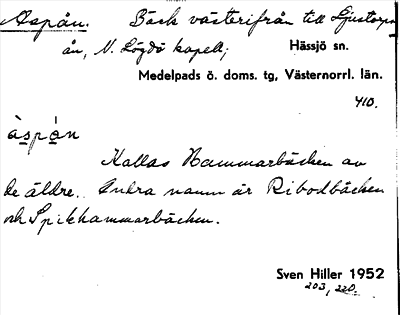 Aspån. Bäck västerifrån till Ljustorps
ån, N. Lögdö kapell; Hässjö sn.
Medelpads ö. doms. tg, Västernorrl. län.
410.
àspá̀n
Kallas Hammarbäcken av
de äldre. Andra namn är Ribodbäcken
och Spikhammarbäcken.
Sven Hiller 1952
203, 220.